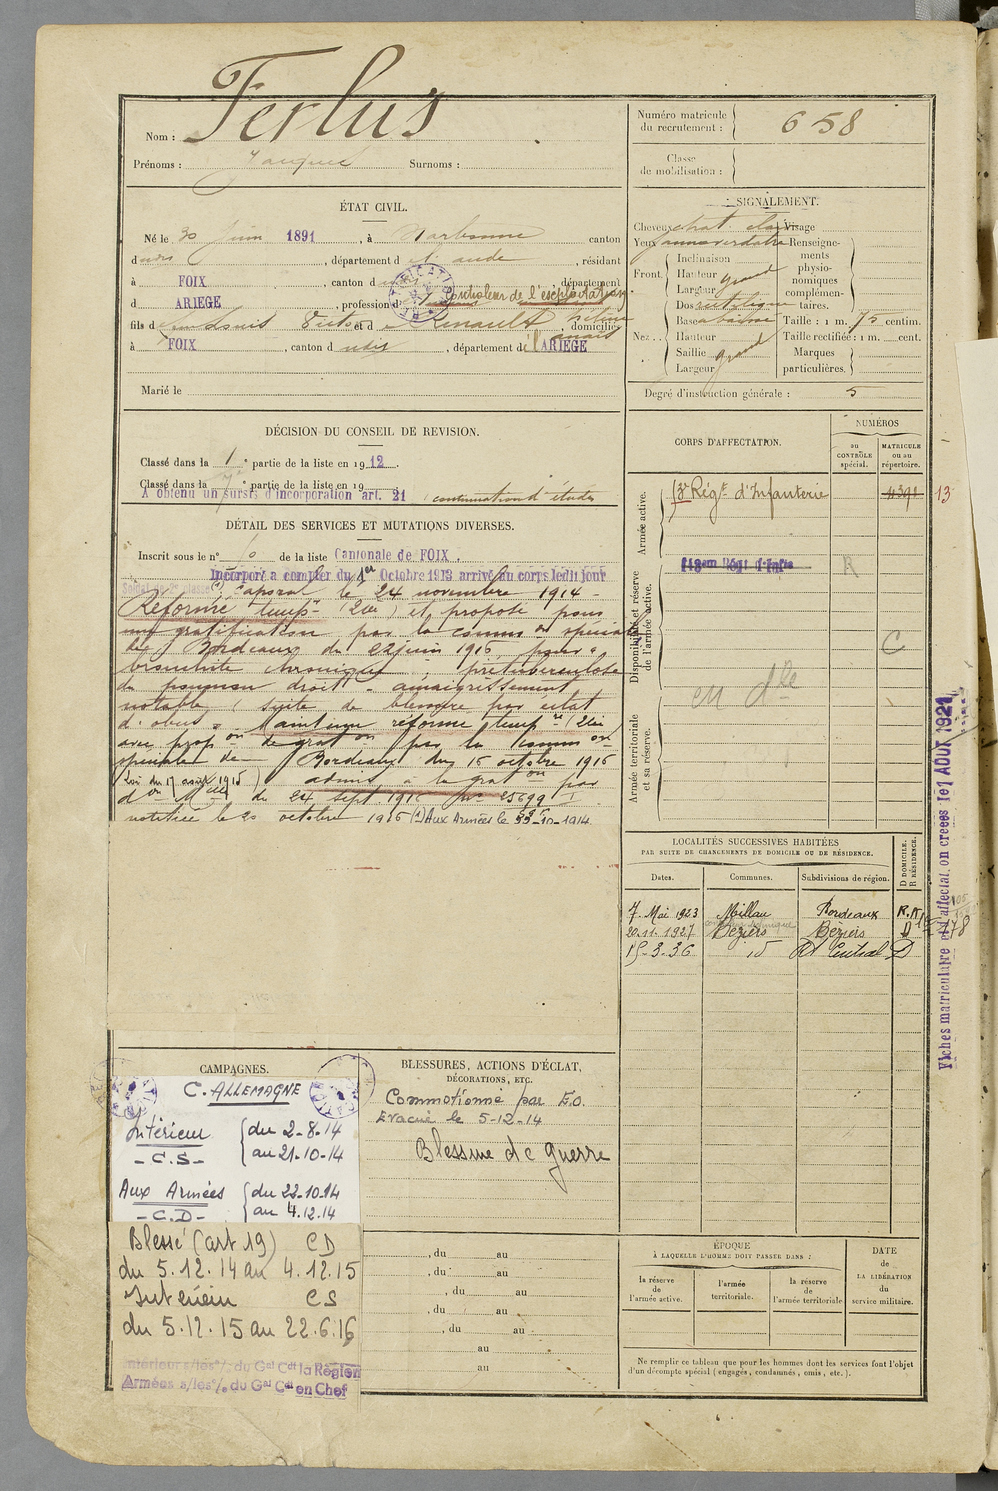 Nom : Ferlus
Prénoms : Jacques Surnoms :
ÉTAT CIVIL.
Né le 30 Juin 1891, à Narbonne canton
dudit, département de l'aude, résidant
à FOIX, canton dudit, département
d ARIEGE, profession d Controleur de l'exploitation
fils de et de Renault, domiciliés
à FOIX, canton dudit, département de l'ARIEGE
Marié le
DÉCISION DU CONSEIL DE REVISION.
Classé dans la 1e partie de la liste en 1912.
Classé dans la 7e partie de la liste en 19
A obtenu un sursis d'incorporation art. 21 continuation d'études
DÉTAIL DES SERVICES ET MUTATIONS DIVERSES.
Inscrit sous le n° 6 de la liste Cantonale de FOIX.
Incorporé a compter du 1er Octobre 1913 arrivé au corps ledit jour
Soldat de 2e classe (1) Caporal le 24 novembre 1914 -
Réformé temp.re (2) et proposé pour
une gratification par la comm on spéciale
de Bordeaux du 22 juin 1916, pour "
bronchite chronique, prétuberculose
du poumon droit - amaigrissement
notable (suite de blessure par éclat
d'obus". Maintenu réformé temp re (2)
avec prop on de grat on par la comm on
spéciale de Bordeaux du 16 octobre 1916
(Loi du 17 août 1915) admis à la grat on par
d on M lle du 24 sept. 1916 No 25699
notifiée le 20 octobre 1916 (1) Aux Armées le 22-10-1914.
CAMPAGNES.
C. ALLEMAGNE
Intérieur { du 2-8-14
- C.S - au 21-10-14
Aux Armées { du 22-10-14
- C.D - au 4.12.14
Blessé (art 19) CD
du 5.12.14 au 4.12.15
Intérieur CS
du 5.12.15 au 22.6.16
Intérieur s/les °/. du Gal Cdt la Région
Armées s/les °/. du Gal Cdt en Chef
BLESSURES, ACTIONS D'ÉCLAT,
DÉCORATIONS, ETC.
Commotionné par E.O.
Evacué le 5-12-14
Blessure de guerre
, du au
, du au
, du au
, du au
, du au
au
au
Numéro matricule
du recrutement : 658
Classe
de mobilisation :
SIGNALEMENT.
Cheveux chat. clair Visage
Yeux Renseigne-
ments
physio-
nomiques
complémen-
taires.
Front. Inclinaison
Hauteur grand
Largeur
Nez. Dos rectiligne
Base abaissé
Hauteur
Saillie grand
Largeur
Taille : 1 m. 75 centim.
Taille rectifiée : 1 m. cent.
Marques
particulières.
Degré d'instruction générale : 5
CORPS D'AFFECTATION.
NUMÉROS
au
CONTRÔLE
spécial.
MATRICULE
ou au
répertoire.
Armée active.
Régt d'Infanterie
4391
13
Disponibilité et réserve
de l'armée active.
R
C
Armée territoriale
et sa réserve.
LOCALITÉS SUCCESSIVES HABITÉES
PAR SUITE DE CHANGEMENTS DE DOMICILE OU DE RÉSIDENCE.
Dates. Communes. Subdivisions de région. D DOMICILE. R RÉSIDENCE.
7 Mai 1923 Millau Bordeaux R.
20.11.1927 Béziers Béziers D
15-3-36 id Central D
ÉPOQUE
À LAQUELLE L'HOMME DOIT PASSER DANS :
la réserve
de
l'armée active.
l'armée
territoriale.
la réserve
de
l'armée territoriale
DATE
de
LA LIBÉRATION
du
service militaire.
Ne remplir ce tableau que pour les hommes dont les services font l'objet
d'un décompte spécial (engagés, condamnés, omis, etc.).
Fiches matriculaire et d'affectat.on créées le 1 AOUT 1921